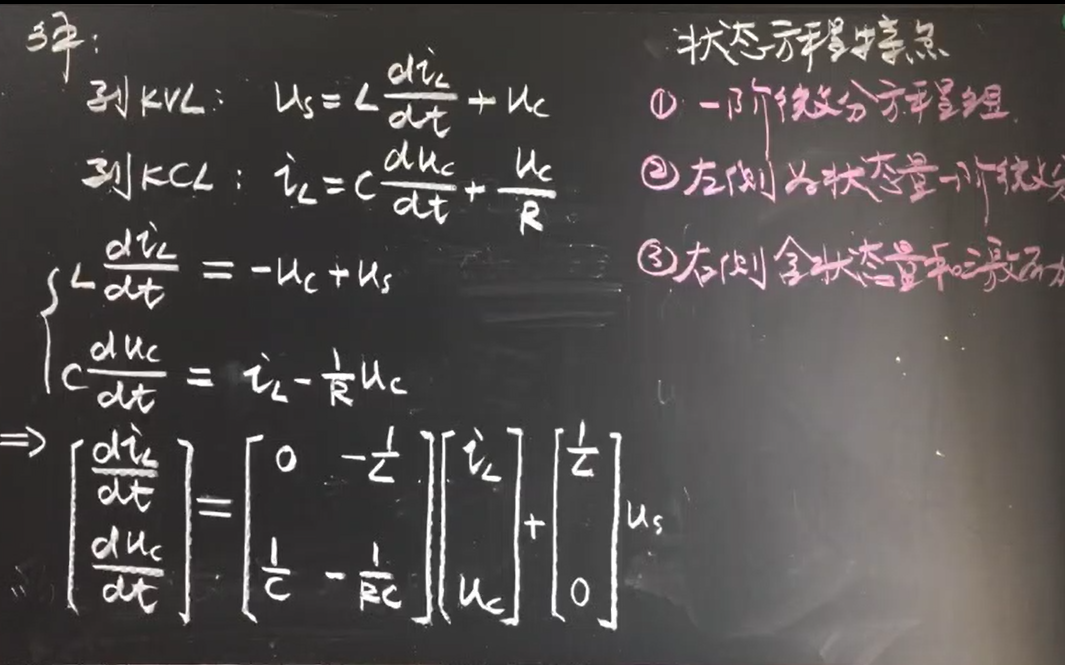 解：
列KVL： u_s = L di_L/dt + u_c
列KCL： i_L = C du_c/dt + u_c/R
{ L di_L/dt = -u_c + u_s
C du_c/dt = i_L - 1/R u_c
⇒ [di_L/dt ; du_c/dt] = [0 -1/L ; 1/C -1/RC] [i_L ; u_c] + [1/L ; 0] u_s
状态方程特点
① 一阶微分方程组
② 左侧为状态量一阶微分
③ 右侧含状态量和激励